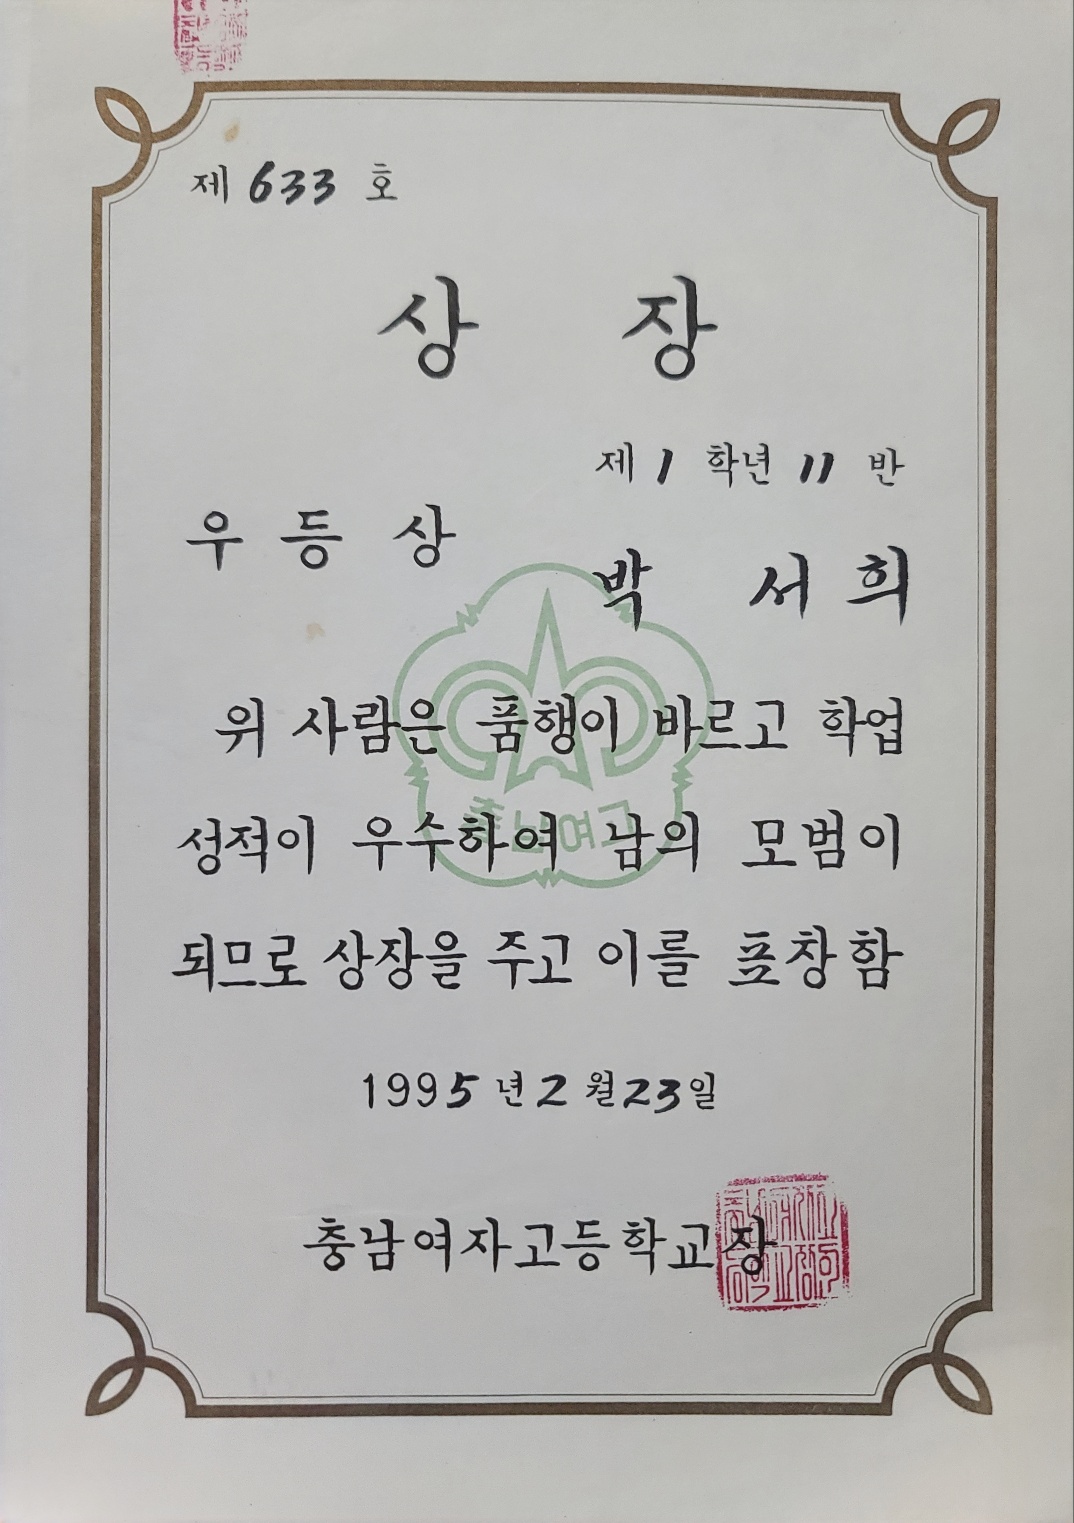 제 633 호
상 장
제 1 학년 11 반
우 등 상
박 서 희
위 사람은 품행이 바르고 학업
성적이 우수하여 남의 모범이
되므로 상장을 주고 이를 표창함
충남여고
1995년 2월 23일
충남여자고등학교장